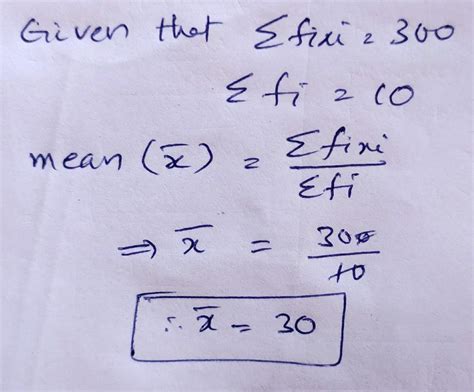 Given that Σfixi = 300
Σfi = 10
mean (x̄) = Σfixi / Σfi
⇒ x̄ = 300 / 10
∴ x̄ = 30